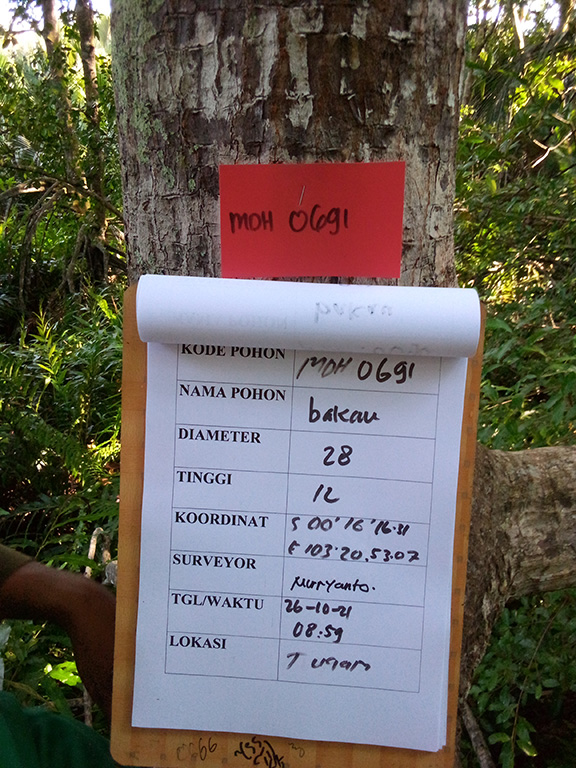 MOH 0691
KODE POHON MOH 0691
NAMA POHON bakau
DIAMETER 28
TINGGI 12
KOORDINAT S 00°16'16.31
E 103°20,53.07
SURVEYOR Nuryanto.
TGL/WAKTU 26-10-21
08:59
LOKASI T